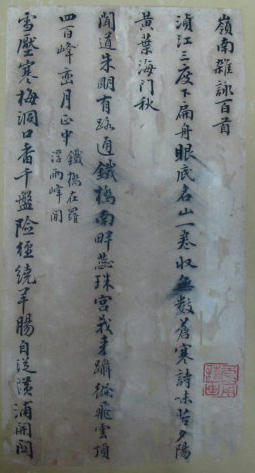 嶺南雜詠百首
湞江三度下扁舟眼底名山一卷收無數蒼寒詩味苦夕陽
黃葉海門秋
聞道朱明有路通鐵橋南畔蕊珠宮我來躡

飛雲頂
四百峰巒月正中鐵橋在羅
浮兩峰間
雪壓寒梅洞口香千盤險徑繞羊腸自從漢浦開關